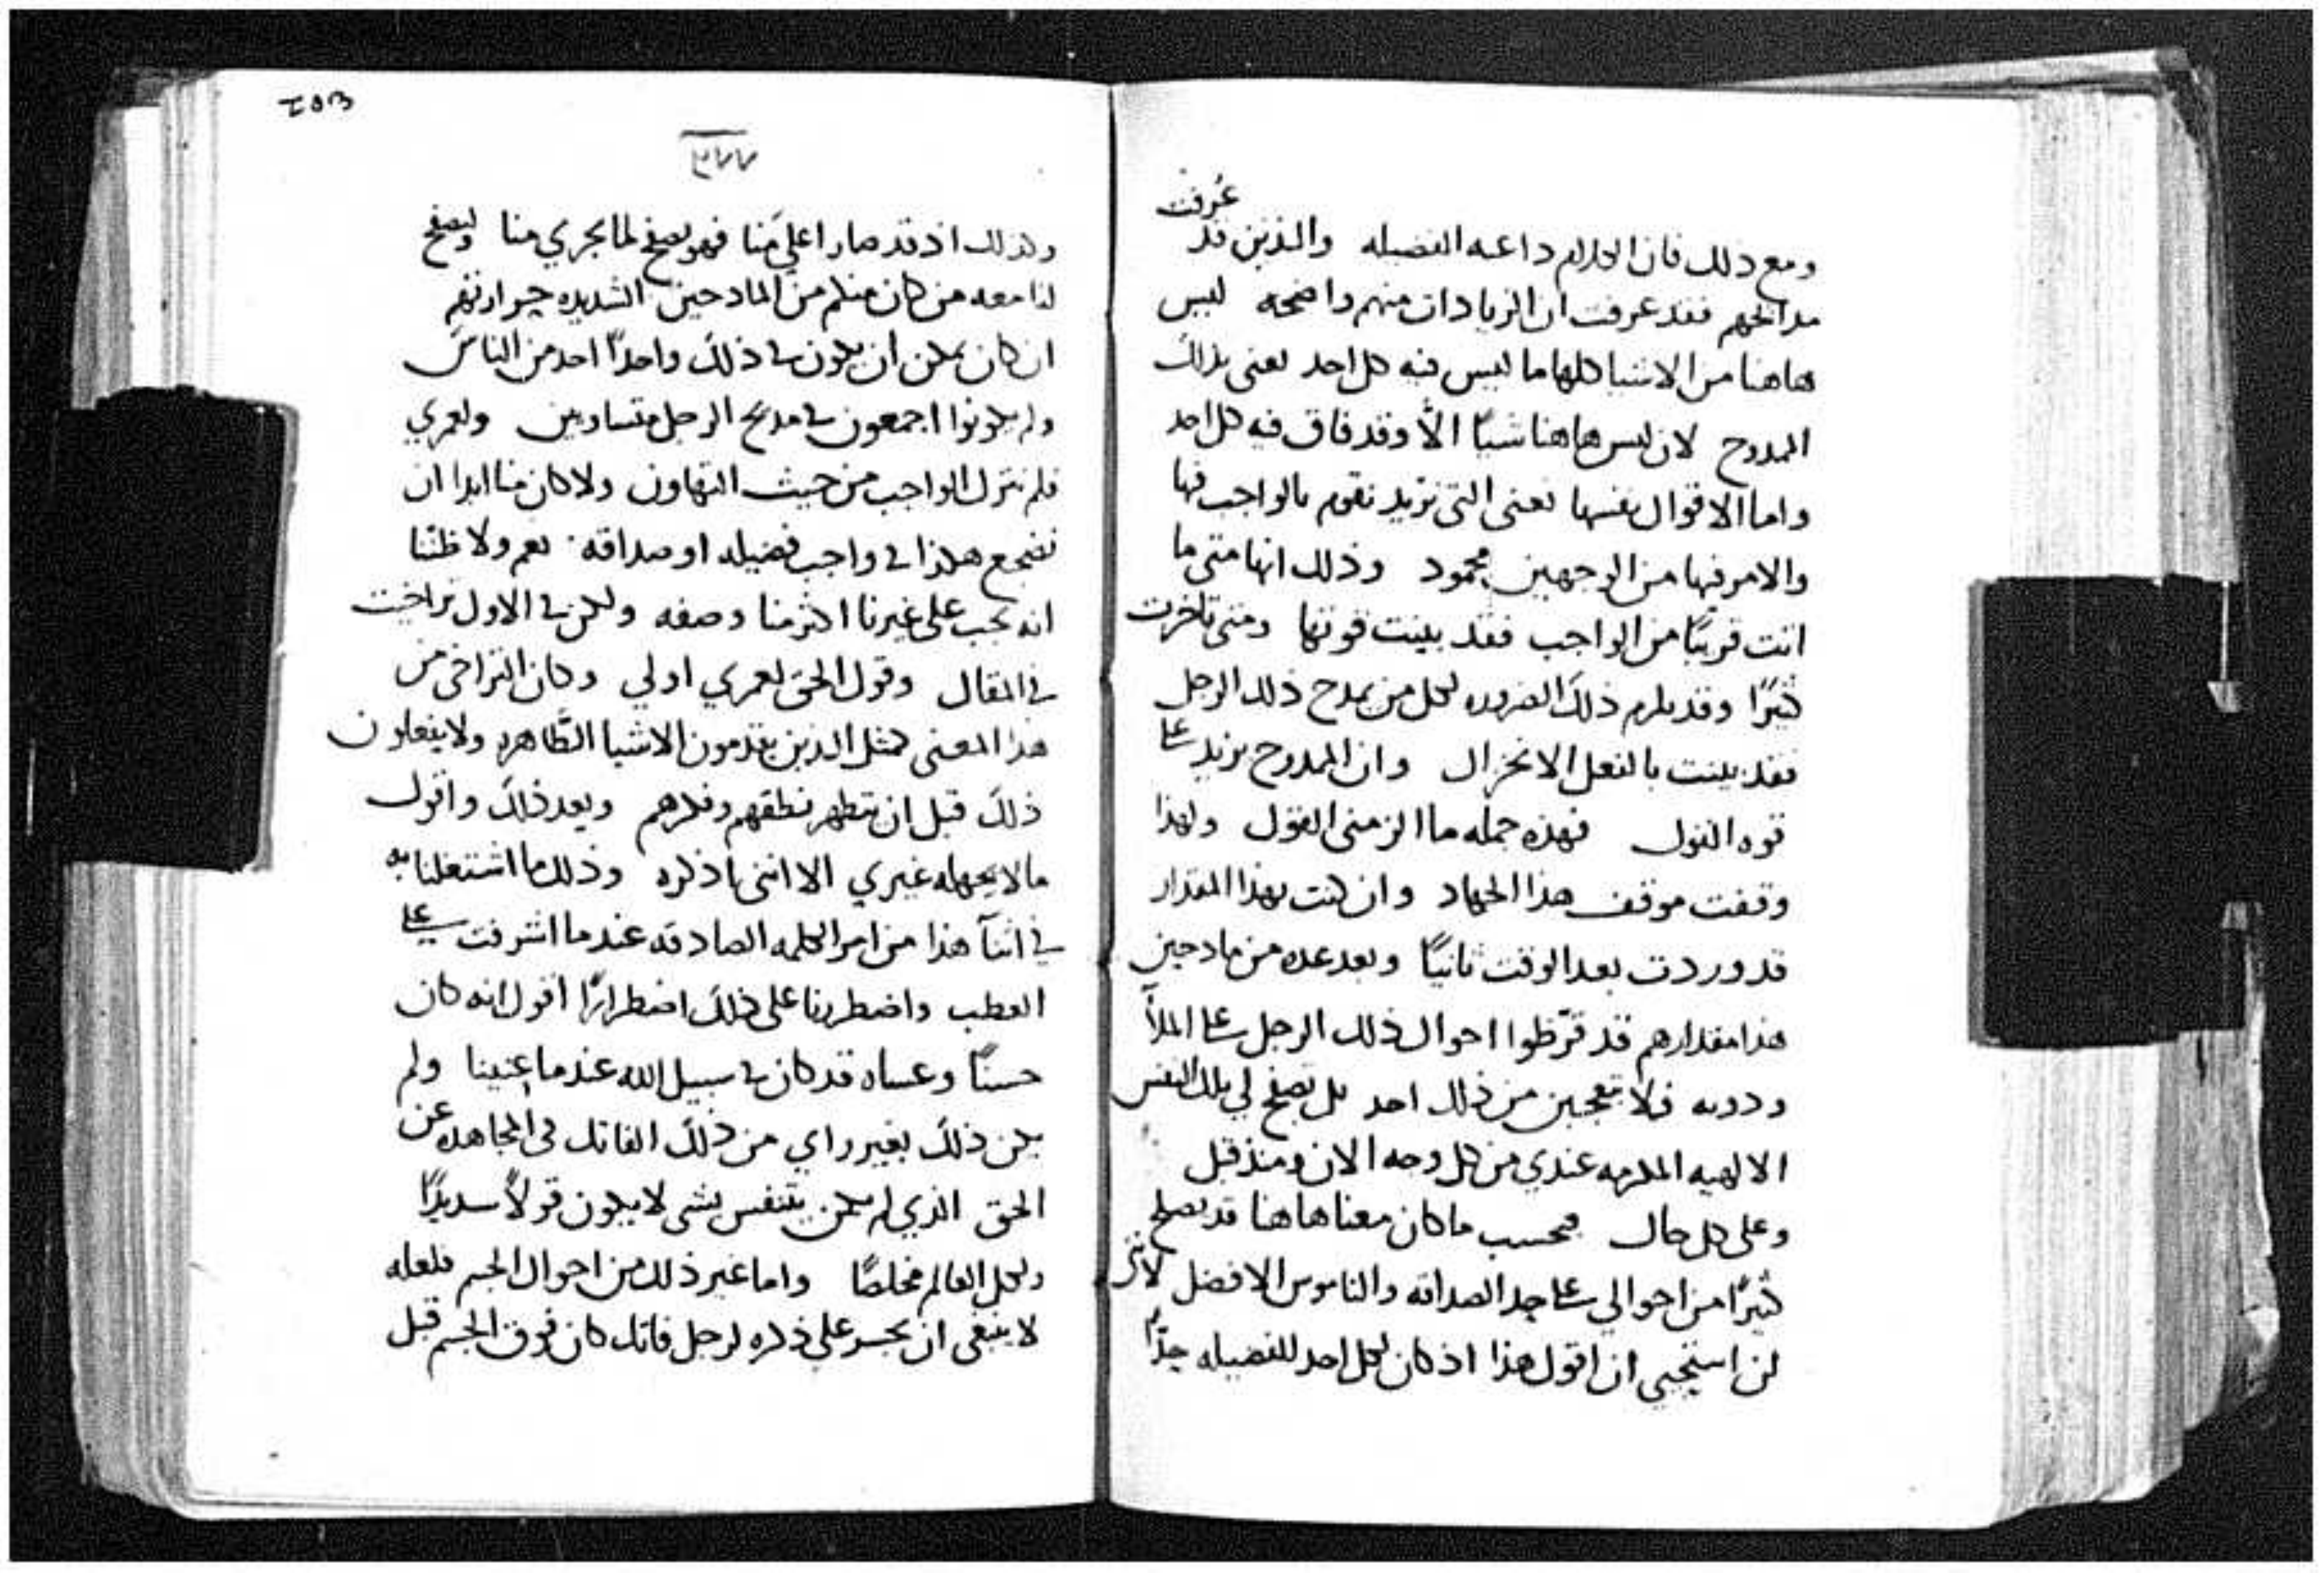 ومع ذلك فان الكلام داعيه الفضيله والذين قد عُرفت
مدائحهم فقد عرفت ان الزيادات منهم واضحه ليس
هاهنا من الاشيا كلها ما ليس فيه كل احد نعني بذلك
الممدوح لان ليس هاهنا شيًا الّا وقد فاق فيه كل احد
واما الاقوال نفسها نعني التي نريد نقوم بالواجب فيها
والامر فيها من الوجهين محمود وذلك انها متى ما
اتت قريبًا من الواجب فقد بينت قوتها ومتى تاخرت
كثيرًا وقد يلزم ذلك الضروره لكل من يمدح ذلك الرجل
فقد بينت بالفعل الانخزال وان الممدوح يزيد على
قوه القول فهذه جمله ما الزمني القول ولهذا
وقفت موقف هذا الجهاد وان كنت بهذا المقدار
قد وردت بعد الوقت ثانيًا وبعد عده من مادحين
هذا مقدارهم قد قرّظوا احوال ذلك الرجل على الملأ
ودونه فلا يتعجبن من ذلك احد بل تصفح لي تلك النفس
الالهيه المكرمه عندي من كل وجه الان ومنذ قبل
وعلى كل حال فبحسب ما كان معنا هاهنا قد يصلح
كثيرًا من احوالي على حد الصداقه والناموس الافضل لاني
لن استحيي ان اقول هذا اذ كان لكل احد للفضيله حدًّا
٣٧٧
وكذلك اذ قد صار اعلى منا فهو يصفح لما يجري منا وليصفح
لنا معه من كان منكم من المادحين الشديده حرارتهم
ان كان يمكن ان يكون في ذلك واحدًا احد من الناس
ولم يكونوا اجمعون في مديح الرجل متساويين ولعمري
فلم نترك الواجب من حيث التهاون ولا كان منا ابدا ان
نضجع هكذا في واجب فضيله او صداقه نعم ولا ظننا
انه يجب على غيرنا اكثر منا وصفه ولكن في الاول تراخيت
في المقال وقول الحق لعمري اولي وكان التراخي من
هذا المعنى كمثل الذين يتقدمون الاشيا الطّاهره ولا يفعلون
ذلك قبل ان يتطهر نطقهم وفكرهم وبعد ذلك واقول
ما لا يجهله غيري الا انني اذكره وذلك ما اشتغلنا به
في اثنآ هذا من امر الكلمه الصادقه عندما اشرفت على
العطب واضطررنا على ذلك اضطرارًا اقول انه كان
حسنًا وعساه قد كان في سبيل الله عندما عنينا ولم
يكن ذلك بغير راي من ذلك الفاتك في المجاهده عن
الحق الذي لم يكن يتنفس بشي لا يكون قولًا سديدًا
ولكل العالم مخلصًا واما غير ذلك من احوال الجسم فلعله
لا ينبغي ان يجسر على ذكره لرجل فاتك كان فوق الجسم قبل